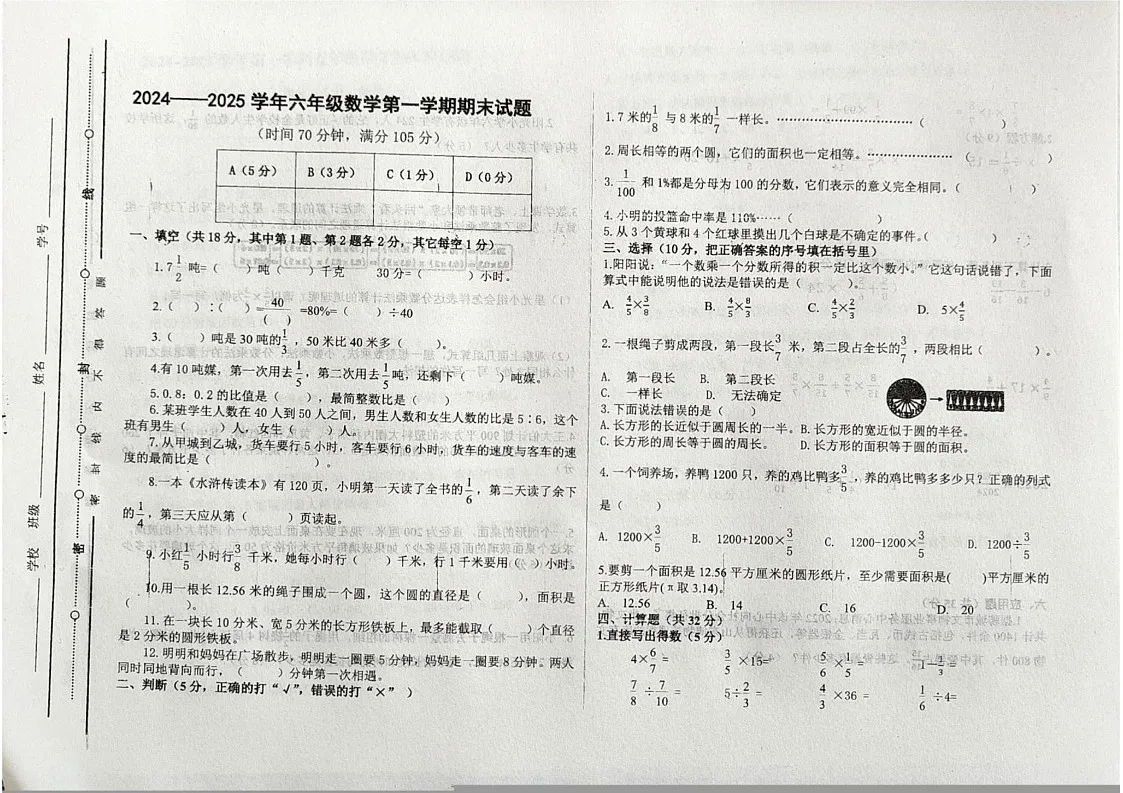 学校 班级 姓名 学号
密 封 线
密 封 线 内 不 得 答 题
2024——2025 学年六年级数学第一学期期末试题
（时间 70 分钟，满分 105 分）
A（5 分） B（3 分） C（1 分） D（0 分）
一、填空（共 18 分，其中第 1 题、第 2 题各 2 分，其它每空 1 分）
1. 7 1/2 吨=（ ）吨（ ）千克 30 分=（ ）小时。
2.（ ）:（ ）= 40/( ) =80%=（ ）÷40
3.（ ）吨是 30 吨的 1/3 ，50 米比 40 米多（ ）。
4.有 10 吨媒，第一次用去 1/5，第二次用去 1/5 吨，还剩下（ ）吨媒。
5. 0.8：0.2 的比值是（ ），最简整数比是（ ）
6.某班学生人数在 40 人到 50 人之间，男生人数和女生人数的比是 5∶6，这个
班有男生（ ）人，女生（ ）人。
7.从甲城到乙城，货车要行 5 小时，客车要行 6 小时，货车的速度与客车的速
度的最简比是（ ）。
8.一本《水浒传读本》有 120 页，小明第一天读了全书的 1/6 ，第二天读了余下
的 1/4，第三天应从第（ ）页读起。
9. 小红 1/5 小时行 3/8 千米，她每小时行（ ）千米，行 1 千米要用（）小时。
10.用一根长 12.56 米的绳子围成一个圆，这个圆的直径是（ ），面积是
（ ）。
11. 在一块长 10 分米、宽 5 分米的长方形铁板上，最多能截取（ ）个直径
是 2 分米的圆形铁板。
12.明明和妈妈在广场散步，明明走一圈要 5 分钟，妈妈走一圈要 8 分钟。两人
同时同地背向而行，（ ）分钟第一次相遇。
二、判断（5 分，正确的打“√”，错误的打“×” ）
1.7 米的 1/8 与 8 米的 1/7 一样长。……………………………（ ）
2.周长相等的两个圆，它们的面积也一定相等。………………（ ）
3. 1/100 和 1%都是分母为 100 的分数，它们表示的意义完全相同。（ ）
4.小明的投篮命中率是 110%……（ ）
5.从 3 个黄球和 4 个红球里摸出几个白球是不确定的事件。（ ）
三、选择（10 分，把正确答案的序号填在括号里）
1.阳阳说：“一个数乘一个分数所得的积一定比这个数小。”它这句话说错了，下面
算式中能说明他的说法是错误的是（ ）。
A. 4/5×3/8 B. 4/5×8/3 C. 4/5×2/3 D. 5×4/5
2.一根绳子剪成两段，第一段长 3/7 米，第二段占全长的 3/7 ，两段相比（ ）。
A. 第一段长 B. 第二段长
C. 一样长 D. 无法确定
3.下面说法错误的是（ ）
A.长方形的长近似于圆周长的一半。B.长方形的宽近似于圆的半径。
C.长方形的周长等于圆的周长。 D.长方形的面积等于圆的面积。
4.一个饲养场，养鸭 1200 只，养的鸡比鸭多 3/5 ，养的鸡比鸭多多少只？正确的列式
是（ ）
A. 1200×3/5 B. 1200+1200×3/5 C. 1200-1200×3/5 D. 1200÷3/5
5.要剪一个面积是 12.56 平方厘米的圆形纸片，至少需要面积是( )平方厘米的
正方形纸片(π取 3.14)。
A. 12.56 B. 14 C. 16 D. 20
四、计算题（共 32 分）
1.直接写出得数（5 分）
4×6/7= 3/5×15= 5/6×1/5= 1-2/3=
7/8÷7/10= 5÷2/3= 4/3×36= 1/6÷4=